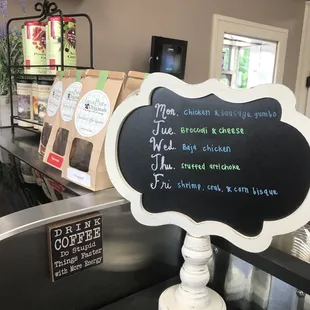 Mon. Chicken & Sausage Gumbo
Tue. Broccoli & cheese
Wed. Baja chicken
Thu. stuffed artichoke
Fri. shrimp, crab, & corn bisque
DRINK
COFFEE
Do Stupid
Things Faster
with More Energy